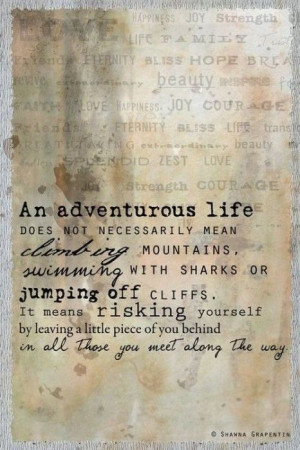 HAPPINESS JOY Strength
LOVE LIFE FAMILY
Friends ETERNITY BLISS HOPE
extraordinary beauty
FAITH LOVE HAPPINESS JOY COURAGE
Friends ETERNITY BLISS LIFE
CREATIVITY extraordinary beauty
SPLENDID ZEST LOVE
Strength COURAGE
An adventurous life
DOES NOT NECESSARILY MEAN
climbing MOUNTAINS,
swimming WITH SHARKS OR
jumping off CLIFFS.
It means risking yourself
by leaving a little piece of you behind
in all those you meet along the way.
© SHAWNA GRAPENTIN